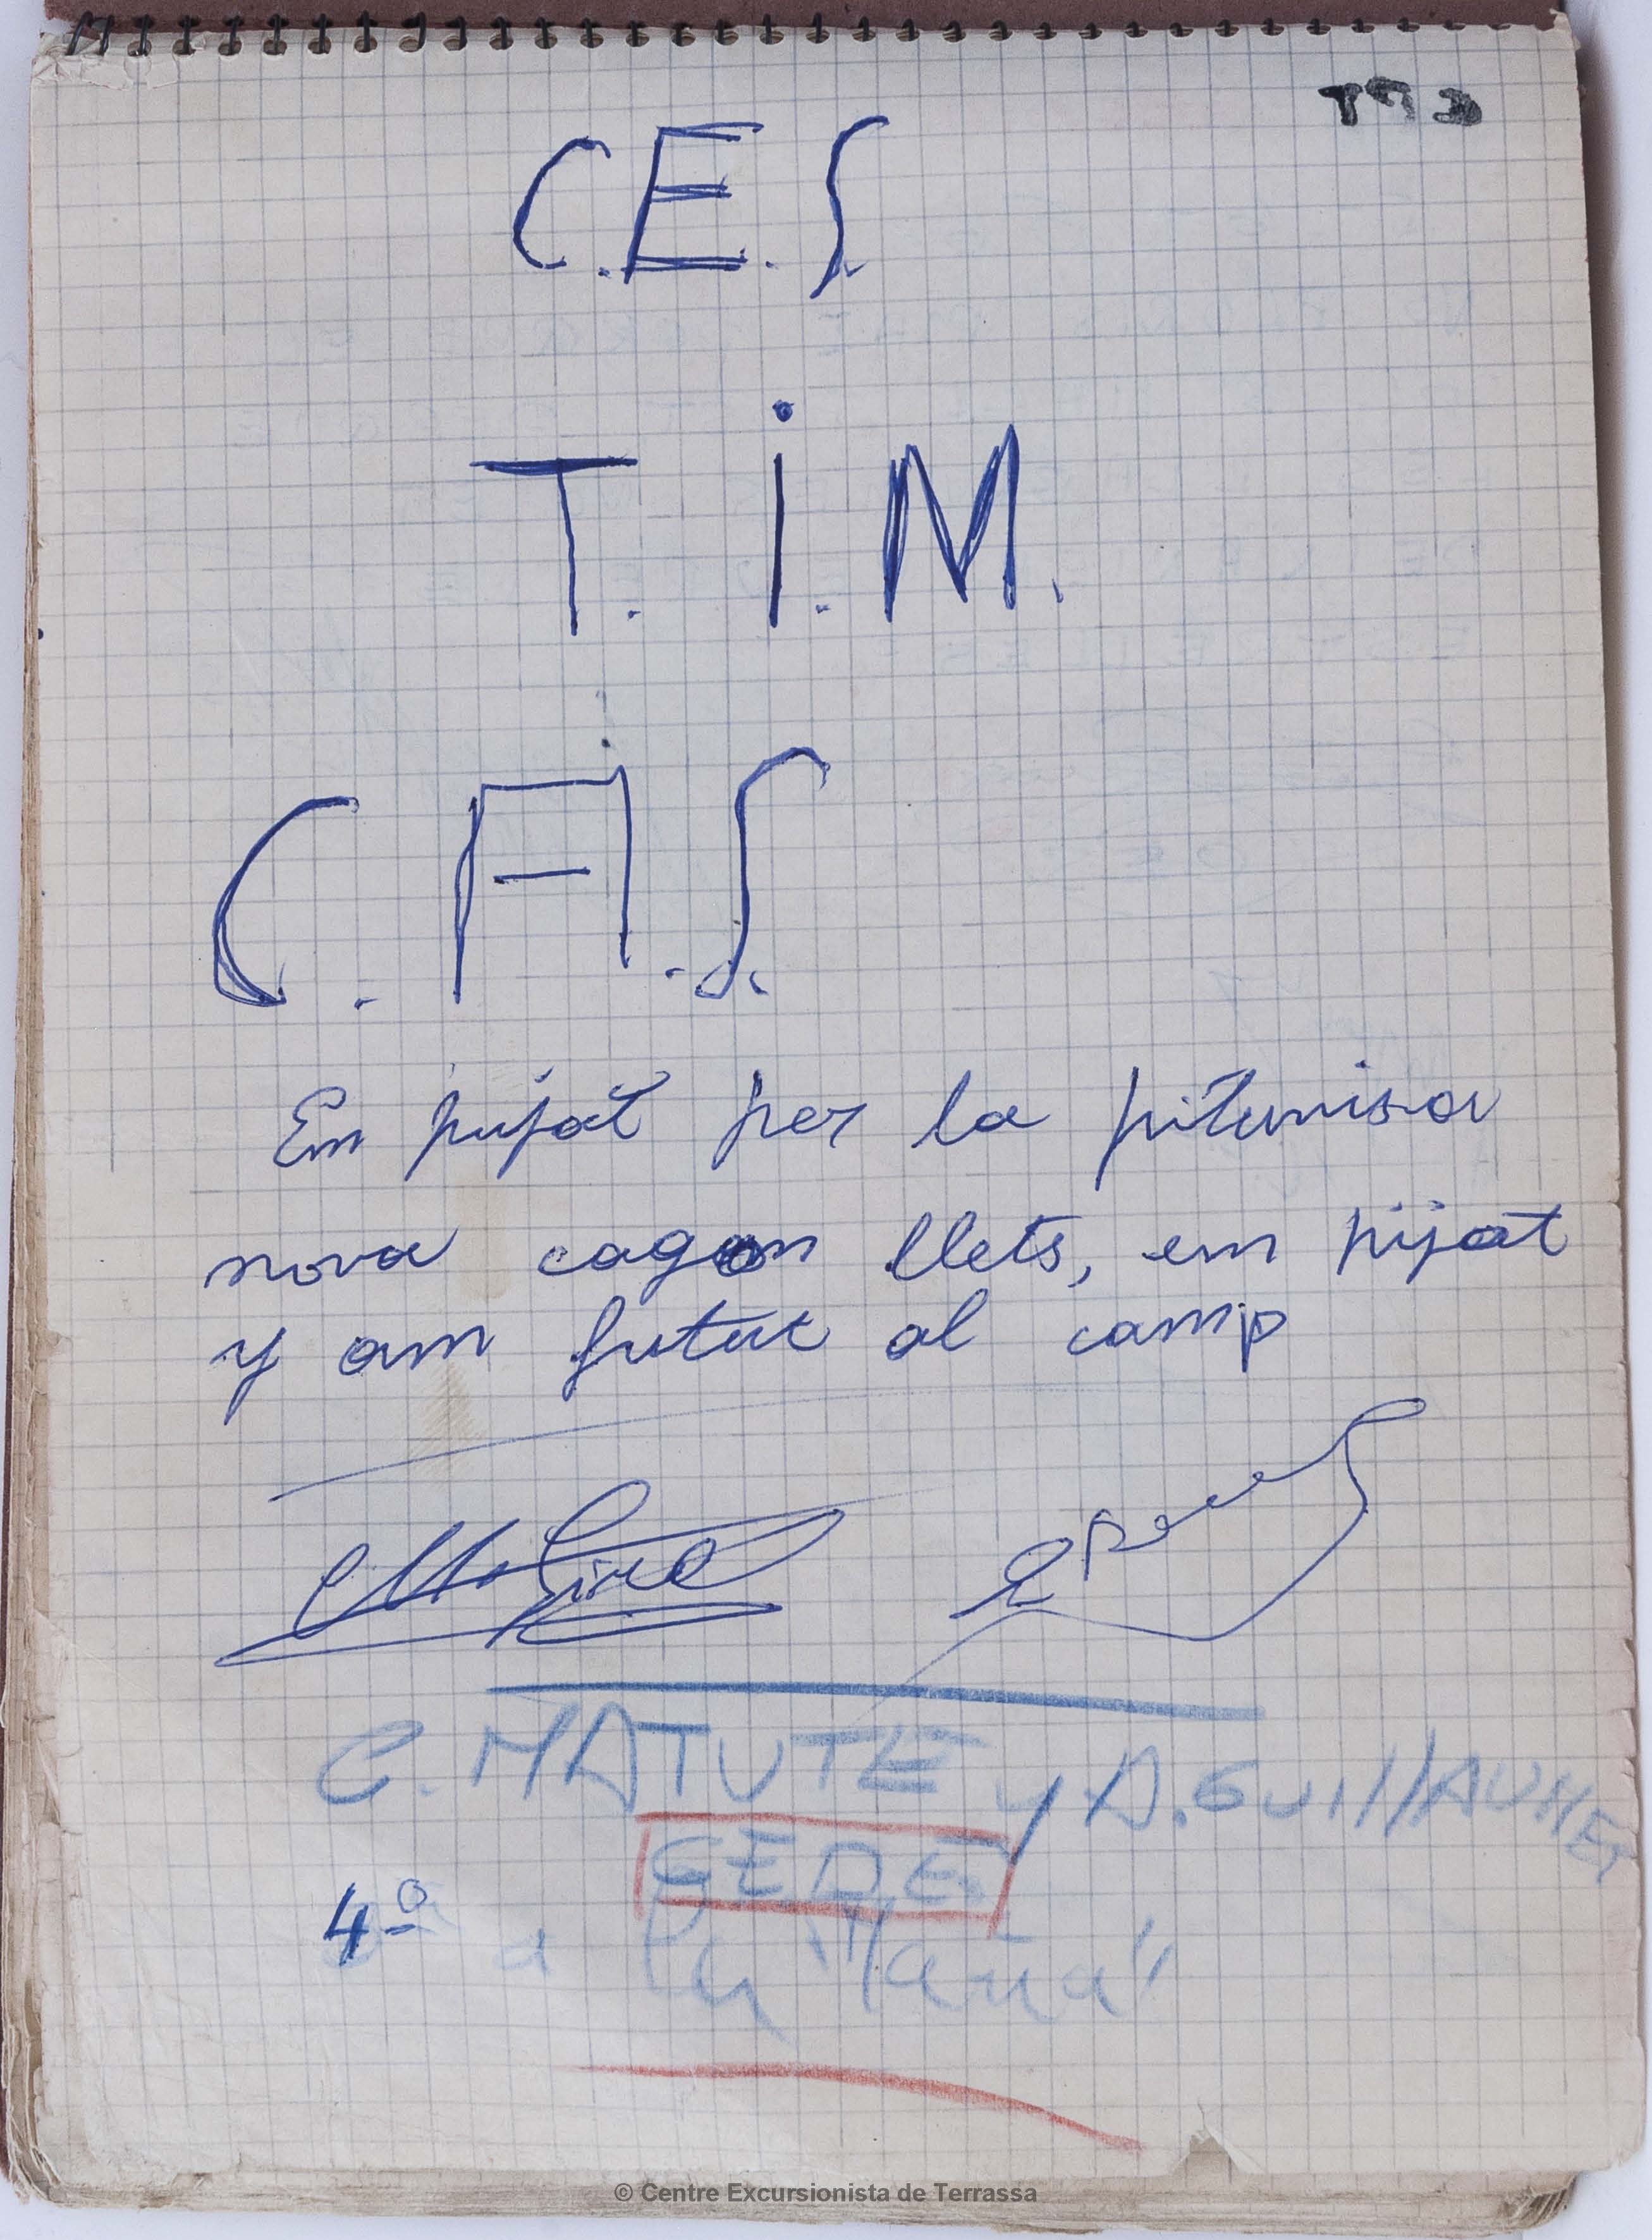 C.E.S.
T.i.M.
C.A.S.
Em pujat per la pitunisa
nova cagan llets, em pijat
y am futut al camp
C. MATUTE y A. GuillAUMET
GEDE
4º a la
© Centre Excursionista de Terrassa